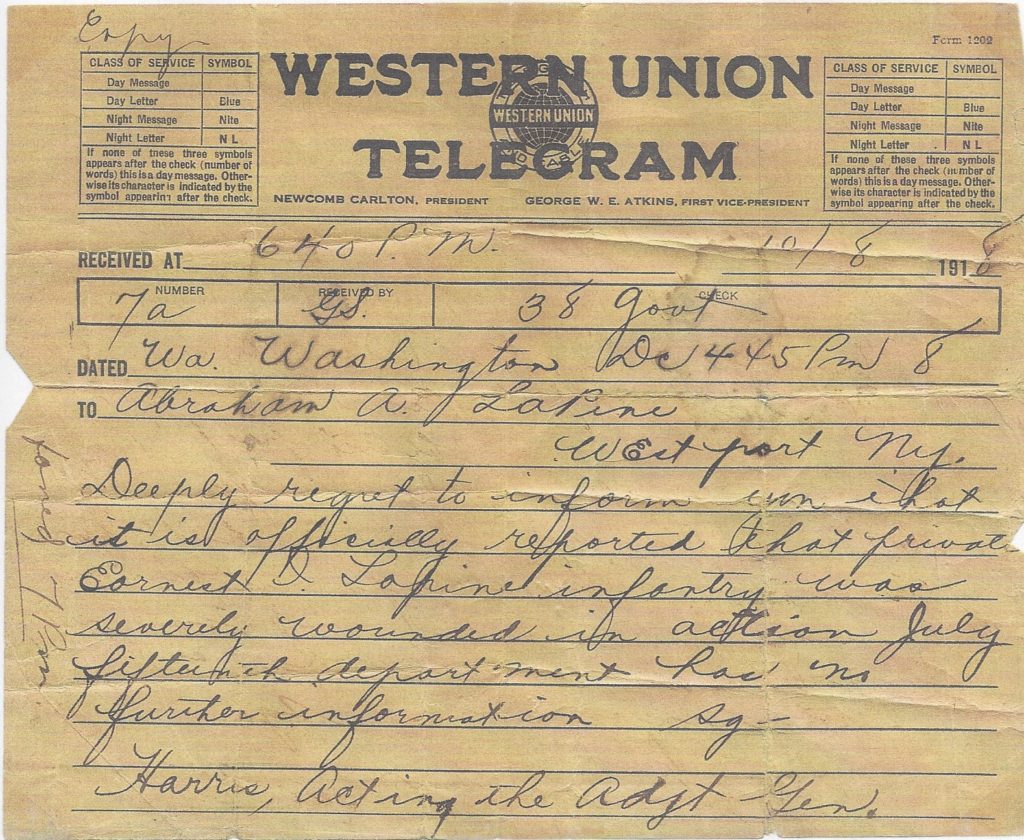 Copy
Form 1202
CLASS OF SERVICE SYMBOL
Day Message
Day Letter Blue
Night Message Nite
Night Letter N L
If none of these three symbols
appears after the check (number of
words) this is a day message. Other-
wise its character is indicated by the
symbol appearing after the check.
WESTERN UNION
WESTERN UNION
TELEGRAM
NEWCOMB CARLTON, PRESIDENT GEORGE W. E. ATKINS, FIRST VICE-PRESIDENT
CLASS OF SERVICE SYMBOL
Day Message
Day Letter Blue
Night Message Nite
Night Letter N L
If none of these three symbols
appears after the check (number of
words) this is a day message. Other-
wise its character is indicated by the
symbol appearing after the check.
RECEIVED AT 640 P.M. 10/8 1918
NUMBER RECEIVED BY CHECK
7a GS. 38 Govt
DATED Wa. Washington Dc 445 Pm 8
TO Abraham A. LaPine
West port Ny.
Deeply regret to inform you that
it is officially reported that private
Earnest D. Lapine infantry was
severely wounded in action July
fifteenth department has no
further information sg-
Harris, Acting the Adgt Gen.
foned 7 Pm